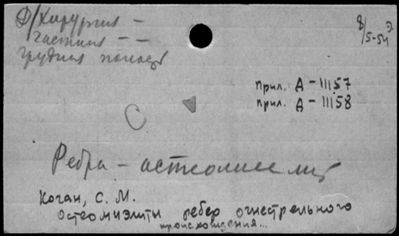 Ф/Хирургия –
частная – –
грудная полость
8/5-54 Э
Прил. Д – 11157
прил. Д – 11158
С
Ребра – остеомиелит
Коган, С. М.
Остеомиэлиты ребер огнестрельного
происхождения...